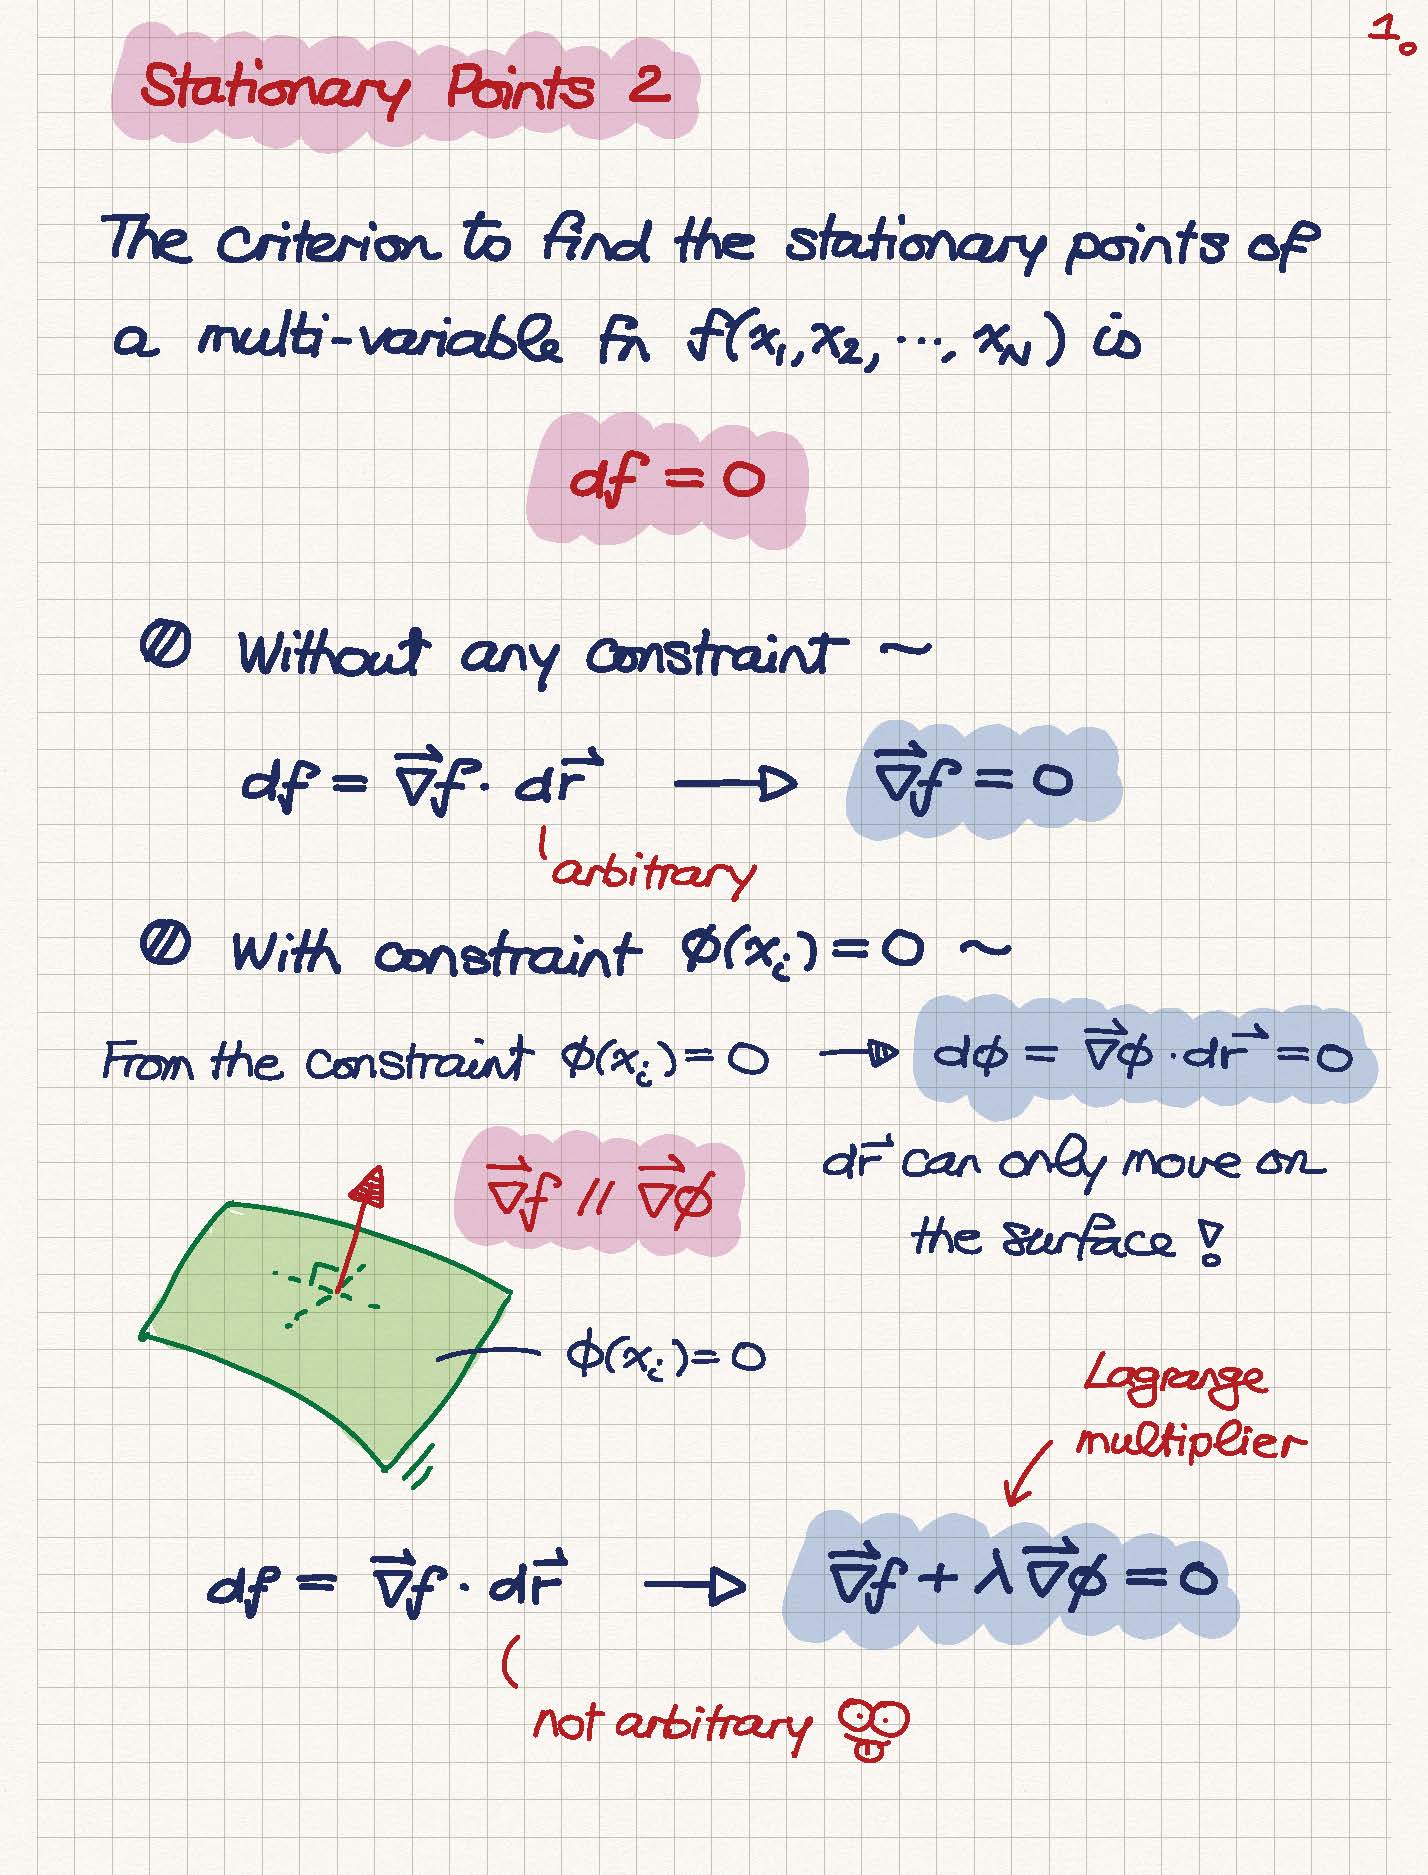 1.
Stationary Points 2
The criterion to find the stationary points of
a multi-variable fn f(x₁, x₂, ..., x_N) is
df = 0
Without any constraint ~
df = ∇⃗f · dr⃗ → ∇⃗f = 0
arbitrary
With constraint ϕ(xᵢ) = 0 ~
From the constraint ϕ(xᵢ) = 0 → dϕ = ∇⃗ϕ · dr⃗ = 0
dr⃗ can only move on
the surface !
∇⃗f // ∇⃗ϕ
ϕ(xᵢ) = 0
Lagrange
multiplier
df = ∇⃗f · dr⃗ → ∇⃗f + λ∇⃗ϕ = 0
not arbitrary